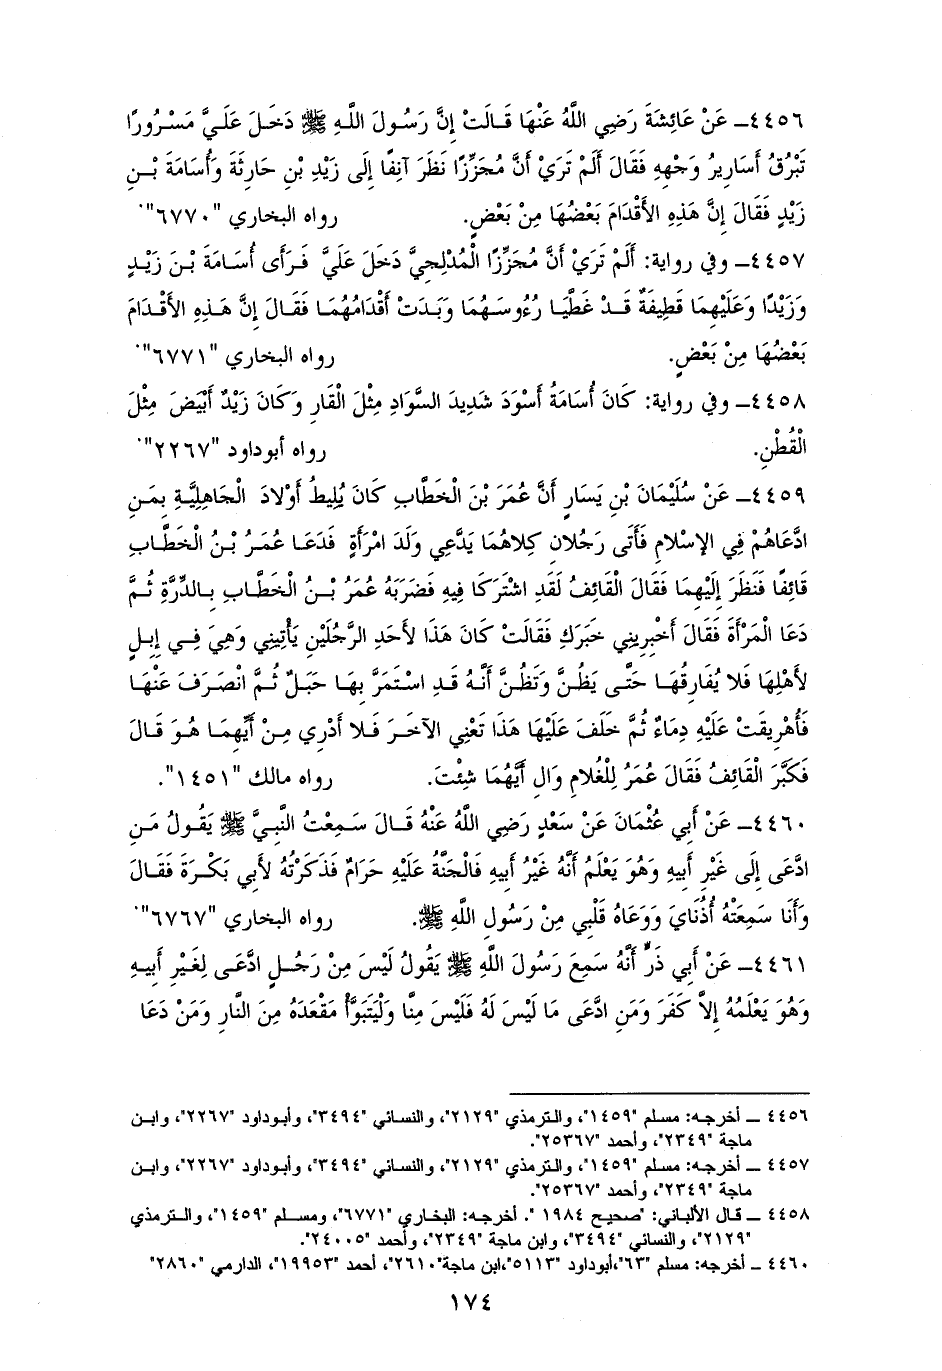 ٤٤٥٦ـ عَنْ عَائِشَةَ رَضِي اللَّهُ عَنْهَا قَـالَتْ إِنَّ رَسُـولَ اللَّـهِ ﷺ دَخَـلَ عَلَـيَّ مَسْـرُورًا
تَبْرُقُ أَسَارِيرُ وَجْهِهِ فَقَالَ أَلَمْ تَرَيْ أَنَّ مُجَزِّزًا نَظَرَ آنِفًا إِلَى زَيْدِ بْنِ حَارِثَةَ وَأُسَامَةَ بْـنِ
زَيْدٍ فَقَالَ إِنَّ هَذِهِ الأَقْدَامَ بَعْضُهَا مِنْ بَعْضٍ. رواه البخاري "٦٧٧٠".
٤٤٥٧ـ وفي رواية: أَلَمْ تَرَيْ أَنَّ مُجَزِّزًا الْمُدْلِجِيَّ دَخَـلَ عَلَـيَّ فَـرَأَى أُسَـامَةَ بْـنَ زَيْـدٍ
وَزَيْدًا وَعَلَيْهِمَا قَطِيفَةٌ قَـدْ غَطَّيَـا رُءُوسَـهُمَا وَبَـدَتْ أَقْدَامُهُمَـا فَقَـالَ إِنَّ هَـذِهِ الأَقْـدَامَ
بَعْضُهَا مِنْ بَعْضٍ. رواه البخاري "٦٧٧١".
٤٤٥٨ـ وفي رواية: كَانَ أُسَامَةُ أَسْوَدَ شَدِيدَ السَّوَادِ مِثْلَ الْقَارِ وَكَانَ زَيْدٌ أَبْيَضَ مِثْلَ
الْقُطْنِ. رواه أبوداود "٢٢٦٧".
٤٤٥٩ـ عَنْ سُلَيْمَانَ بْنِ يَسَارٍ أَنَّ عُمَرَ بْنَ الْخَطَّابِ كَانَ يُلِيطُ أَوْلادَ الْجَاهِلِيَّـةِ بِمَـنِ
ادَّعَاهُمْ فِي الإِسْلامِ فَأَتَى رَجُلانِ كِلاهُمَا يَدَّعِي وَلَدَ امْرَأَةٍ فَدَعَـا عُمَـرُ بْـنُ الْخَطَّـابِ
قَائِفًا فَنَظَرَ إِلَيْهِمَا فَقَالَ الْقَائِفُ لَقَدِ اشْتَرَكَا فِيهِ فَضَرَبَهُ عُمَرُ بْـنُ الْخَطَّابِ بِـالدِّرَّةِ ثُـمَّ
دَعَا الْمَرْأَةَ فَقَالَ أَخْبِرِينِي خَبَرَكِ فَقَالَتْ كَانَ هَذَا لأَحَدِ الرَّجُلَيْنِ يَأْتِينِي وَهِيَ فِـي إِبِـلٍ
لأَهْلِهَا فَلا يُفَارِقُهَـا حَتَّـى يَظُـنَّ وَتَظُـنَّ أَنَّـهُ قَـدِ اسْـتَمَرَّ بِهَـا حَبَـلٌ ثُـمَّ انْصَـرَفَ عَنْهَـا
فَأُهْرِيقَتْ عَلَيْهِ دِمَاءٌ ثُمَّ خَلَفَ عَلَيْهَا هَذَا تَعْنِي الآخَـرَ فَـلا أَدْرِي مِـنْ أَيِّهِمَـا هُـوَ قَـالَ
فَكَبَّرَ الْقَائِفُ فَقَالَ عُمَرُ لِلْغُلامِ وَالِ أَيَّهُمَا شِئْتَ. رواه مالك "١٤٥١".
٤٤٦٠ـ عَنْ أَبِي عُثْمَانَ عَنْ سَعْدٍ رَضِي اللَّهُ عَنْهُ قَـالَ سَـمِعْتُ النَّبِـيَّ ﷺ يَقُـولُ مَـنِ
ادَّعَى إِلَى غَيْرِ أَبِيهِ وَهُوَ يَعْلَمُ أَنَّهُ غَيْرُ أَبِيهِ فَالْجَنَّةُ عَلَيْهِ حَرَامٌ فَذَكَرْتُهُ لأَبِي بَكْرَةَ فَقَالَ
وَأَنَا سَمِعَتْهُ أُذُنَايَ وَوَعَاهُ قَلْبِي مِنْ رَسُولِ اللَّهِ ﷺ. رواه البخاري "٦٧٦٧".
٤٤٦١ـ عَنْ أَبِي ذَرٍّ أَنَّهُ سَمِعَ رَسُولَ اللَّهِ ﷺ يَقُولُ لَيْسَ مِنْ رَجُـلٍ ادَّعَـى لِغَـيْرِ أَبِيـهِ
وَهُوَ يَعْلَمُهُ إِلاَّ كَفَرَ وَمَنِ ادَّعَى مَا لَيْسَ لَهُ فَلَيْسَ مِنَّا وَلْيَتَبَوَّأْ مَقْعَدَهُ مِنَ النَّارِ وَمَنْ دَعَا
٤٤٥٦ ـ أخرجه: مسلم "١٤٥٩"، والترمذي "٢١٢٩"، والنسائي "٣٤٩٤"، وأبوداود "٢٢٦٧"، وابن
ماجة "٢٣٤٩"، وأحمد "٢٥٣٦٧".
٤٤٥٧ ـ أخرجه: مسلم "١٤٥٩"، والترمذي "٢١٢٩"، والنسائي "٣٤٩٤"، وأبوداود "٢٢٦٧"، وابن
ماجة "٢٣٤٩"، وأحمد "٢٥٣٦٧".
٤٤٥٨ ـ قال الألباني: "صحيح ١٩٨٤ ". أخرجه: البخاري "٦٧٧١"، ومسلم "١٤٥٩"، والترمذي
"٢١٢٩"، والنسائي "٣٤٩٤"، وابن ماجة "٢٣٤٩"، وأحمد "٢٤٠٠٥".
٤٤٦٠ ـ أخرجه: مسلم "٦٣"،أبوداود "٥١١٣"،ابن ماجة"٢٦١٠"، أحمد "١٩٩٥٣"، الدارمي "٢٨٦٠"
١٧٤